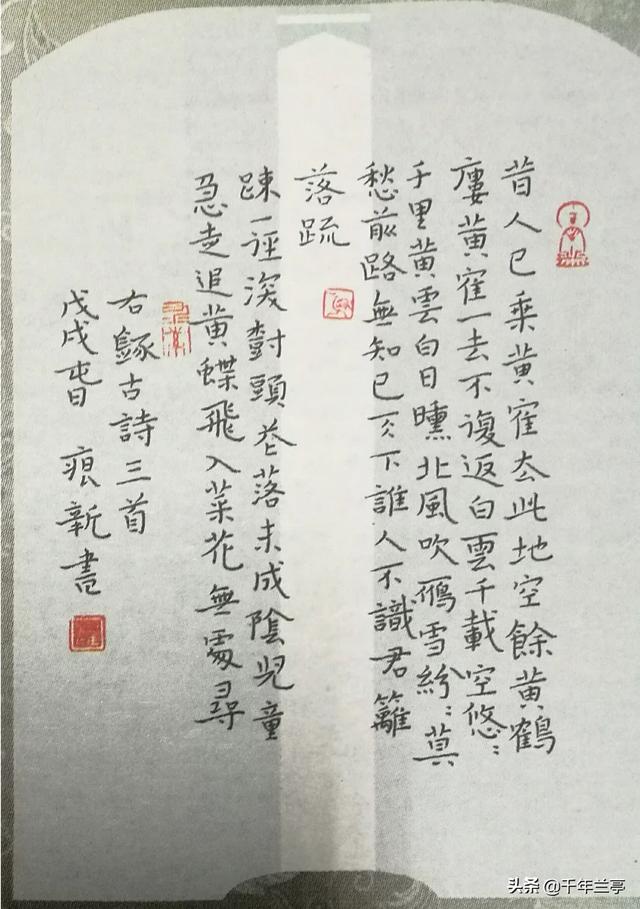 昔人已乘黄寉去此地空餘黄鶴
廔黄寉一去不復返白雲千載空悠〻
千里黄雲白日曛北風吹鴈雪紛〻莫
愁前路無知已天下誰人不識君籬
落疏
踈一逕深對頭花落未成陰児童
急走追黄蝶飛入菜花無處尋
右録古詩三首
戊戌春 痕新書
头条 @千年兰亭